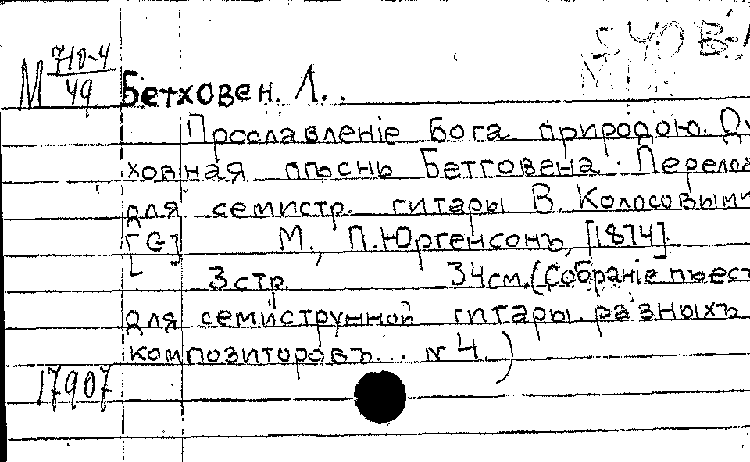 540 В-
М 710-4/49 Бетховен. Л..
Прославленіе бога природою. Ду
ховная пѣснь Бетговена. Перелож
для семистр. гитары В. Колосовым
[G] М., П. Юргенсонъ, [1874].
3 стр 34 см. (Собраніе пьест
для семиструнной гитары разныхъ
композиторовъ... № 4.)
17907